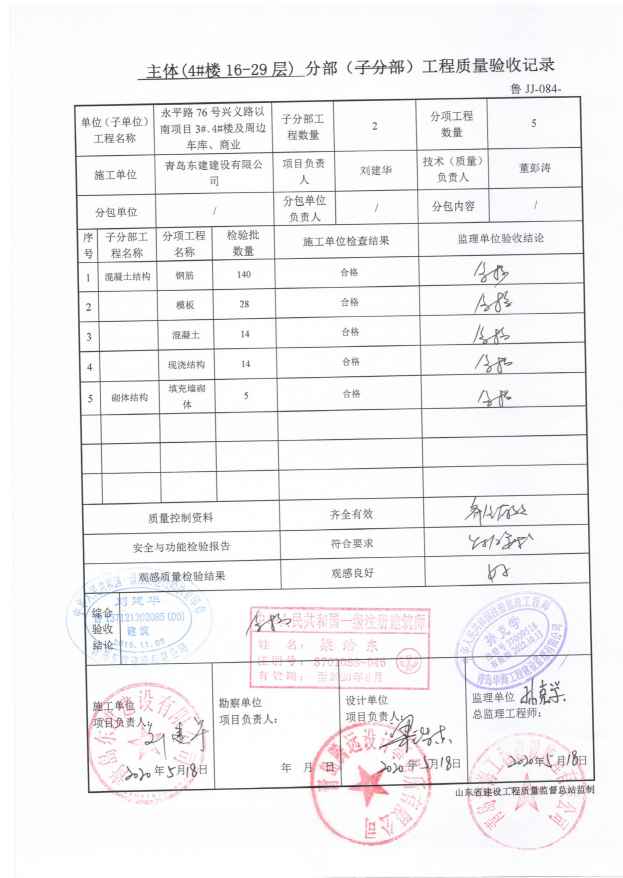 主体(4#楼 16-29 层) 分部（子分部）工程质量验收记录
鲁 JJ-084-
单位（子单位）工程名称 永平路 76 号兴义路以南项目 3#.4#楼及周边车库、商业 子分部工程数量 2 分项工程数量 5
施工单位 青岛东建建设有限公司 项目负责人 刘建华 技术（质量）负责人 董彭涛
分包单位 / 分包单位负责人 / 分包内容 /
序号 子分部工程名称 分项工程名称 检验批数量 施工单位检查结果 监理单位验收结论
1 混凝土结构 钢筋 140 合格 合格
2 模板 28 合格 合格
3 混凝土 14 合格 合格
4 现浇结构 14 合格 合格
5 砌体结构 填充墙砌体 5 合格 合格
质量控制资料 齐全有效 齐全有效
安全与功能检验报告 符合要求 符合要求
观感质量检验结果 观感良好 好
综合验收结论 合格
刘建华
建筑
中华人民共和国一级注册建筑师
姓 名：
注册号：
有效期：
施工单位 勘察单位 设计单位 监理单位
项目负责人： 项目负责人： 项目负责人： 总监理工程师：
刘建华
2020 年 5 月 18 日 年 月 日 2020 年 5 月 18 日 2020 年 5 月 18 日
山东省建设工程质量监督总站监制